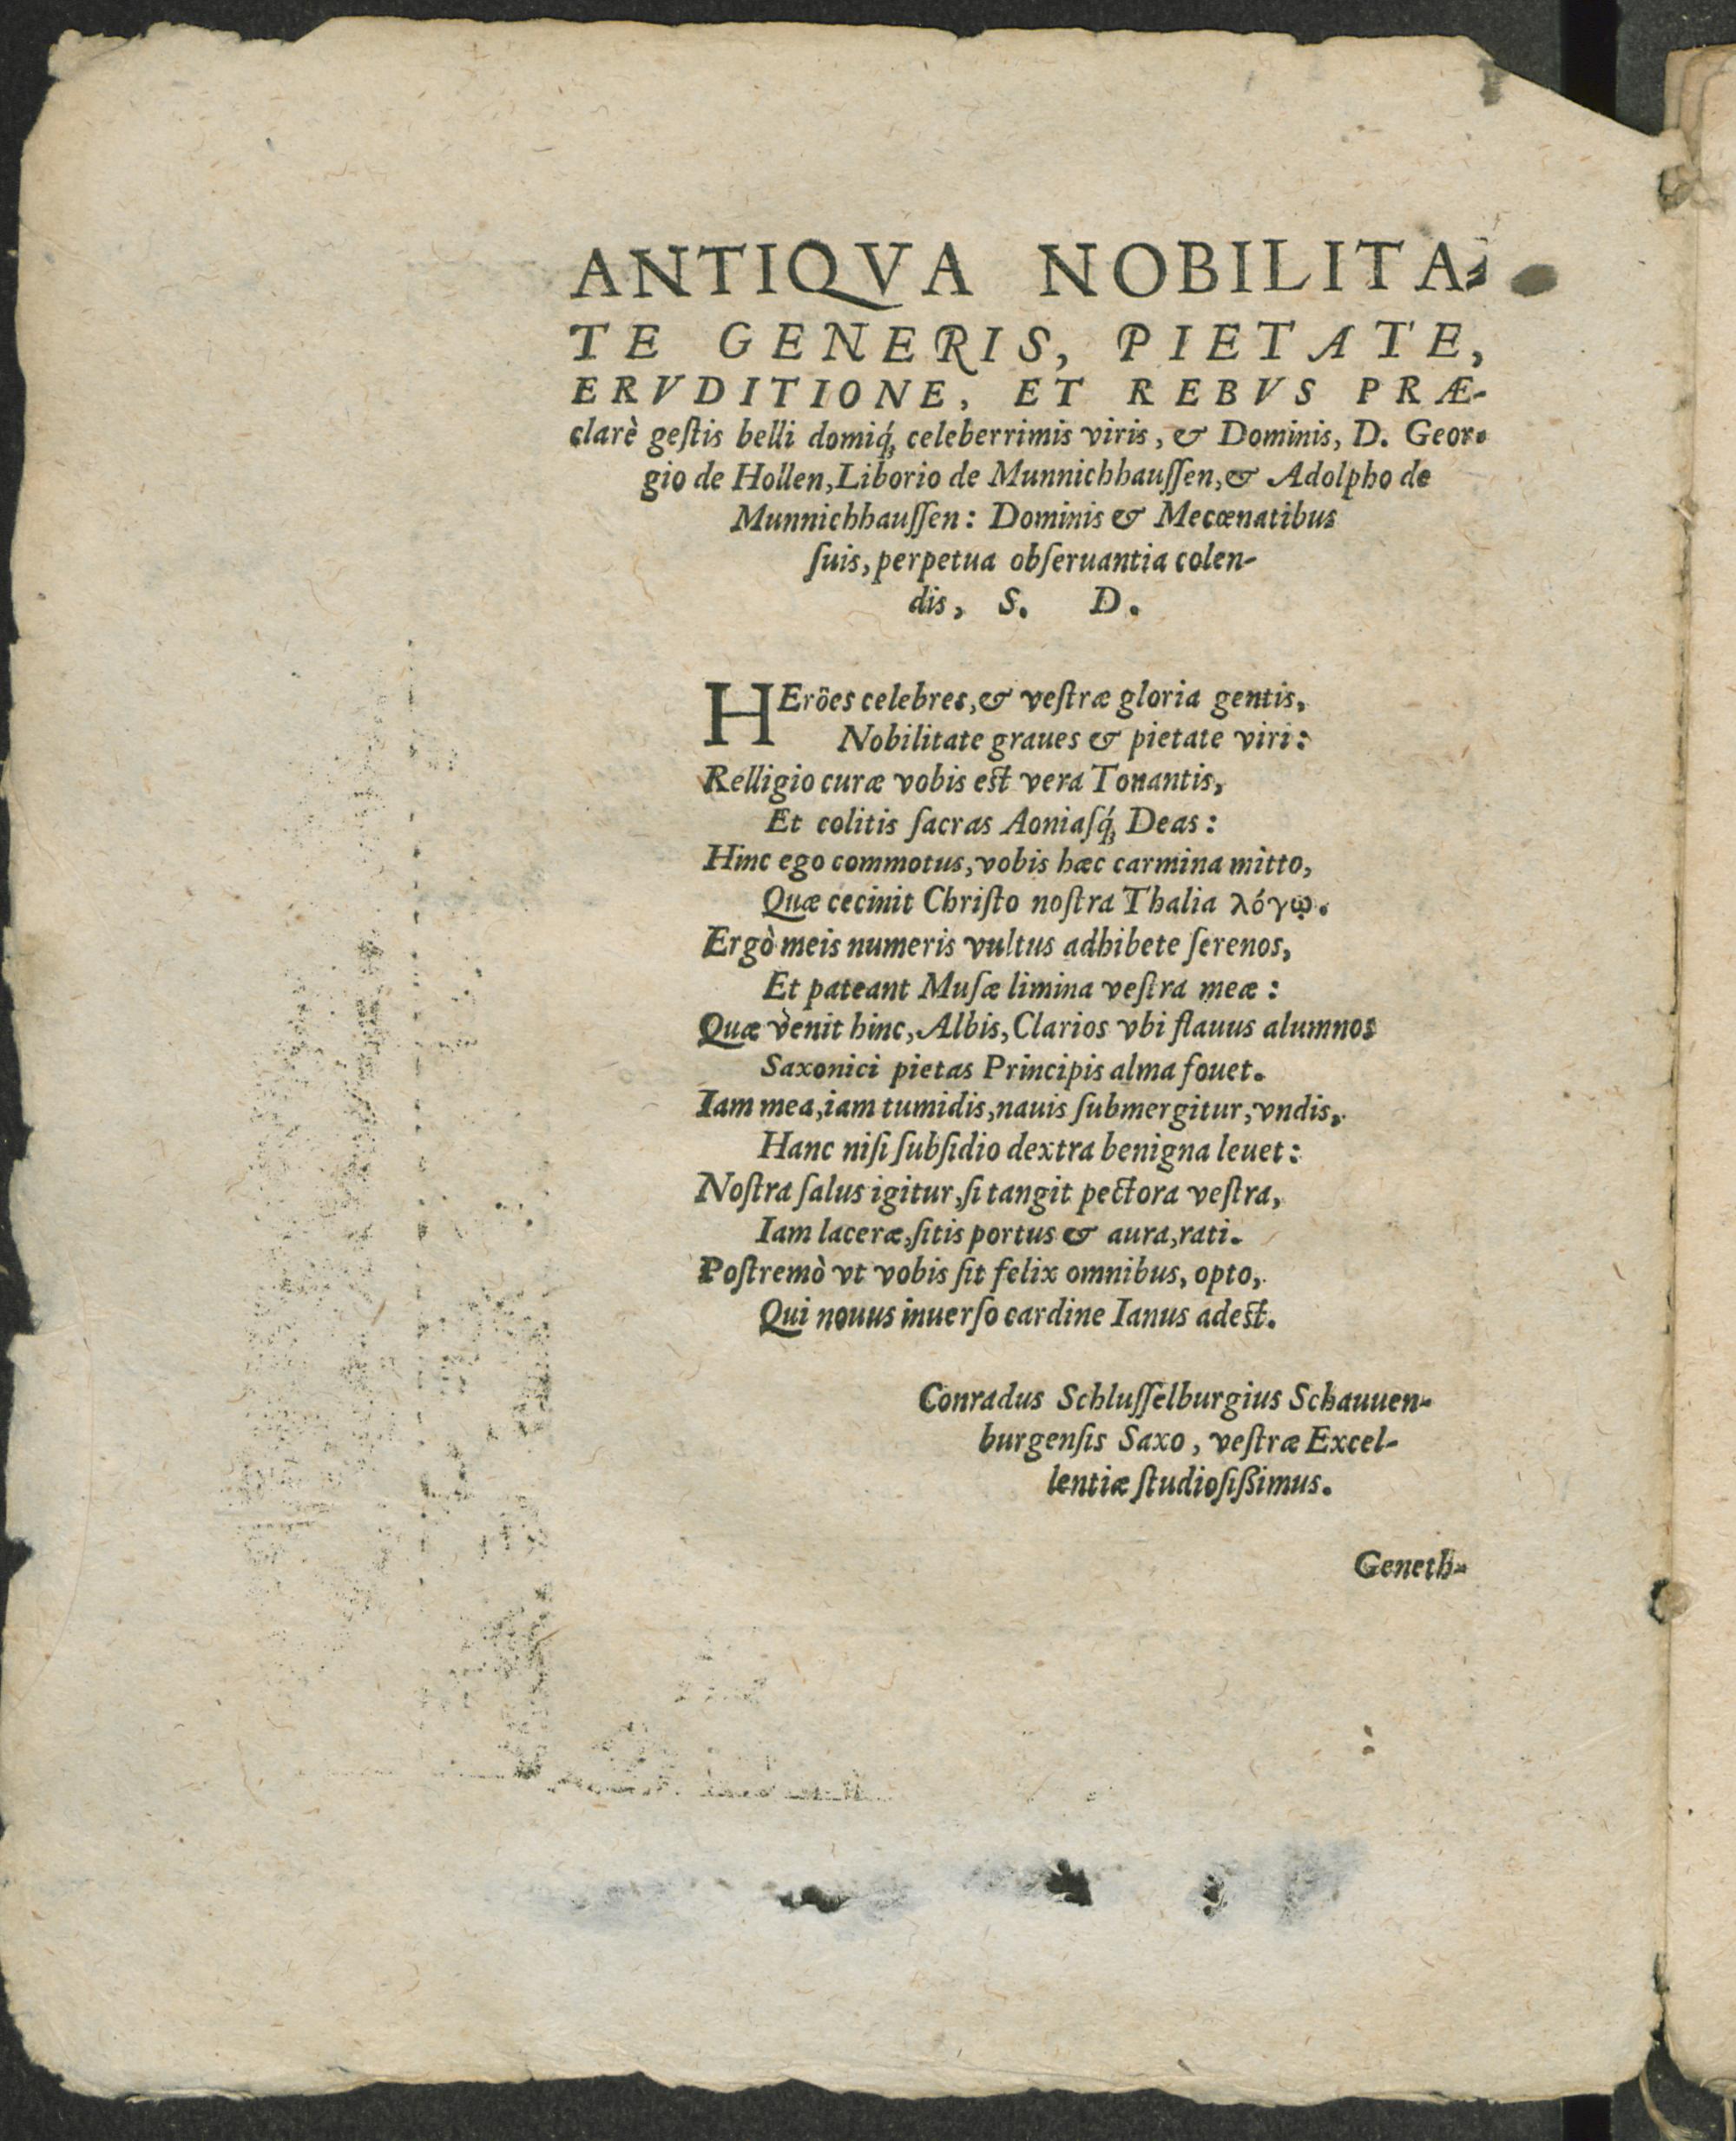 ANTIQVA NOBILITA-
TE GENERIS, PIETATE,
ERVDITIONE, ET REBVS PRÆ-
clarè geſtis belli domiq́ꝫ celeberrimis viris, & Dominis, D. Geor-
gio de Hollen, Liborio de Munnichhauſſen, & Adolpho de
Munnichhauſſen: Dominis & Mecœnatibus
ſuis, perpetua obſeruantia colen-
dis, S. D.
HEröes celebres, & veſtræ gloria gentis,
Nobilitate graues & pietate viri:
Relligio curæ vobis eſt vera Tonantis,
Et colitis ſacras Aoniaſq́ꝫ Deas:
Hinc ego commotus, vobis hæc carmina mitto,
Quæ cecinit Chriſto noſtra Thalia λόγῳ.
Ergò meis numeris vultus adhibete ſerenos,
Et pateant Muſæ limina veſtra meæ:
Quæ venit hinc, Albis, Clarios vbi flauus alumnos
Saxonici pietas Principis alma fouet.
Iam mea, iam tumidis, nauis ſubmergitur, vndis,
Hanc niſi ſubſidio dextra benigna leuet:
Noſtra ſalus igitur, ſi tangit pectora veſtra,
Iam laceræ, ſitis portus & aura, rati.
Poſtremò vt vobis ſit felix omnibus, opto,
Qui nouus inuerſo cardine Ianus adeſt.
Conradus Schluſſelburgius Schauuen-
burgenſis Saxo, veſtræ Excel-
lentiæ ſtudioſißimus.
Geneth-